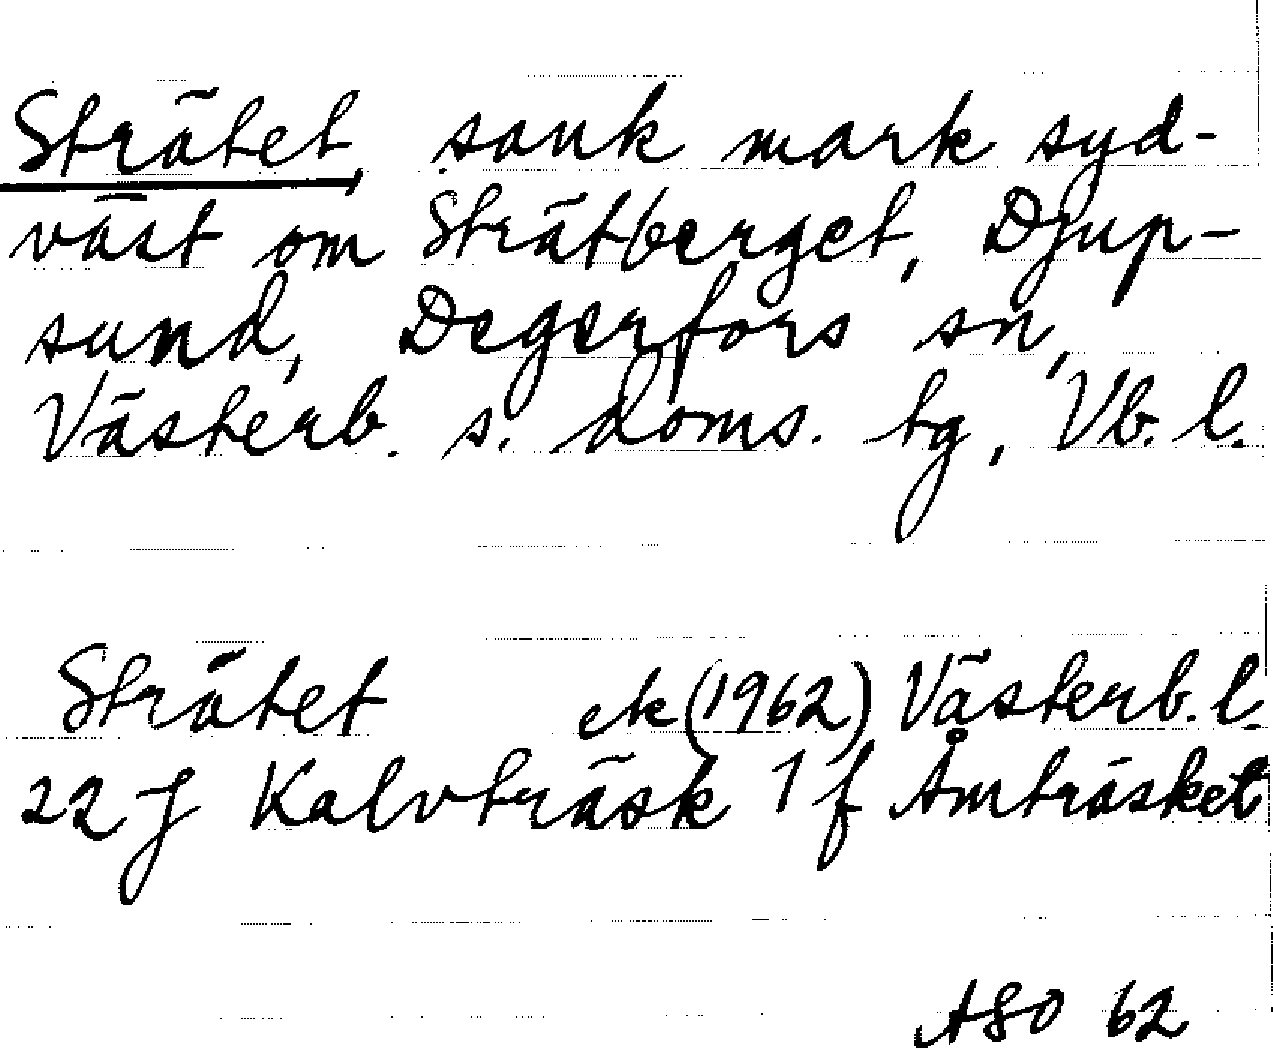 Strätet, sank mark syd-
väst om Strätberget, Djup-
sund, Degerfors sn,
Västerb. s. doms. tg, Vb. l.
Strätet ek (1962) Västerb. l.
22 J Kalvträsk 1 f Åmträsket
ASO 62